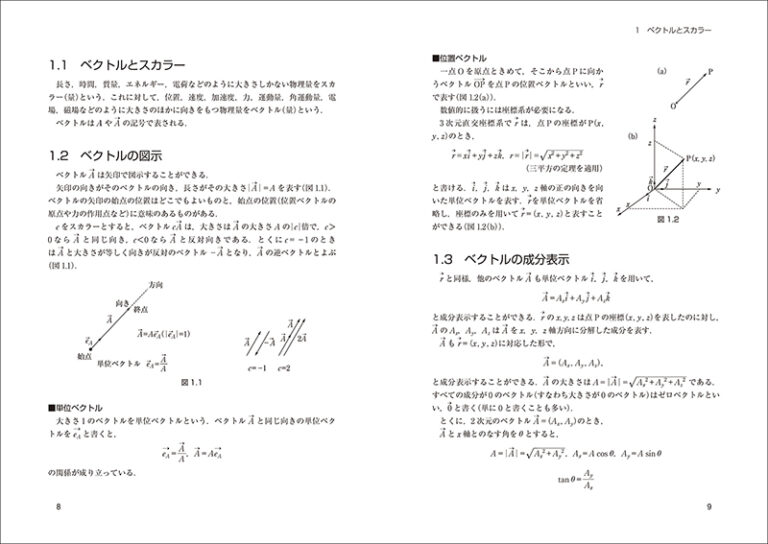 1.1 ベクトルとスカラー
長さ，時間，質量，エネルギー，電荷などのように大きさしかない物理量をスカ
ラー(量)という．これに対して，位置，速度，加速度，力，運動量，角運動量，電
場，磁場などのように大きさのほかに向きをもつ物理量をベクトル(量)という．
ベクトルは A や A⃗ の記号で表される．
1.2 ベクトルの図示
ベクトル A⃗ は矢印で図示することができる．
矢印の向きがそのベクトルの向き，長さがその大きさ|A⃗|=A を表す(図1.1)．
ベクトルの矢印の始点の位置はどこでもよいものと，始点の位置(位置ベクトルの
原点や力の作用点など)に意味のあるものがある．
c をスカラーとすると，ベクトル cA⃗ は，大きさは A⃗ の大きさ A の|c|倍で，c>
0 なら A⃗ と同じ向き，c<0 なら A⃗ と反対向きである．とくに c=−1 のとき
は A⃗ と大きさが等しく向きが反対のベクトル −A⃗ となり，A⃗ の逆ベクトルとよぶ
(図1.1)．
方向
向き
終点
A⃗
A⃗=Ae⃗A(|e⃗A|=1)
e⃗A
始点
単位ベクトル e⃗A=A⃗/A
A⃗ −A⃗ A⃗ A⃗ 2A⃗
c=−1 c=2
図 1.1
■単位ベクトル
大きさ1のベクトルを単位ベクトルという．ベクトル A⃗ と同じ向きの単位ベク
トルを e⃗A と書くと，
e⃗A=A⃗/A, A⃗=Ae⃗A
の関係が成り立っている．
8
1 ベクトルとスカラー
■位置ベクトル
一点 O を原点ときめて，そこから点 P に向か
うベクトル OP⃗ を点 P の位置ベクトルといい，r⃗
で表す(図1.2(a))．
数値的に扱うには座標系が必要になる．
3次元直交座標系で r⃗ は，点 P の座標が P(x,
y, z)のとき，
r⃗=xi⃗+yj⃗+zk⃗, r=|r⃗|=√(x²+y²+z²)
(三平方の定理を適用)
と書ける．i⃗，j⃗，k⃗ は x，y，z 軸の正の向きを向
いた単位ベクトルを表す．r⃗ を位置ベクトルを省
略し，座標のみを用いて r⃗=(x, y, z)と表すこと
ができる(図1.2(b))．
(a)
P
r⃗
O
(b)
z
z
P(x, y, z)
r⃗
k⃗
O
j⃗
i⃗
y
y
x
x
図 1.2
1.3 ベクトルの成分表示
r⃗ と同様，他のベクトル A⃗ も単位ベクトル i⃗，j⃗，k⃗ を用いて，
A⃗=Axi⃗+Ayj⃗+Azk⃗
と成分表示することができる．r⃗ の x, y, z は点 P の座標(x, y, z)を表したのに対し，
A⃗ の Ax，Ay，Az は A⃗ を x，y，z 軸方向に分解した成分を表す．
A⃗ も r⃗=(x, y, z)に対応した形で，
A⃗=(Ax, Ay, Az),
と成分表示することができる．A⃗ の大きさは A=|A⃗|=√(Ax²+Ay²+Az²) である．
すべての成分が0のベクトル(すなわち大きさが0のベクトル)はゼロベクトルとい
い，0⃗ と書く(単に0と書くことも多い)．
とくに，2次元のベクトル A⃗=(Ax, Ay)のとき，
A⃗ と x 軸とのなす角を θ とすると，
A=|A⃗|=√(Ax²+Ay²), Ax=A cos θ, Ay=A sin θ
tan θ=Ay/Ax
9